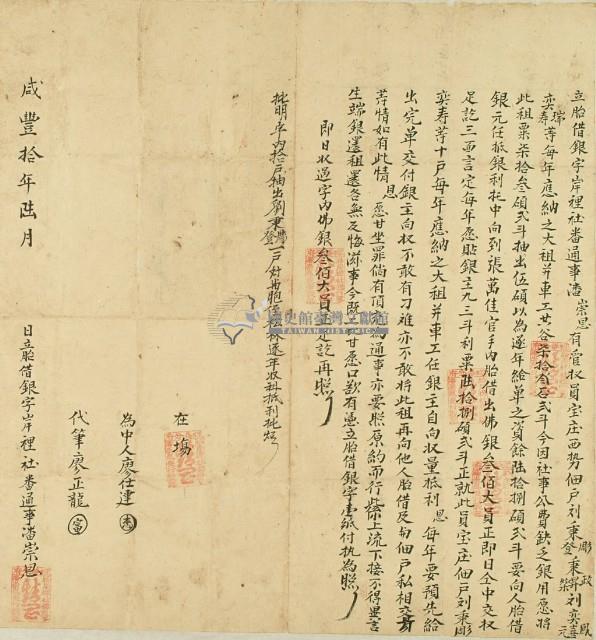 立胎借銀字岸裡社番通事潘崇恩有管收員宝庄西勢佃戶刘秉彫登秉昇刘奕政
奕瑞寿等每年應納之大租并車工甘谷柒拾叁石弍斗今因社事公費缺乏銀用愿將
此租粟柒拾叁碩弍斗抽出伍碩以為逐年給單之資餘陆拾捌碩弍斗要向人胎借
銀元任抵銀利托中向到張萬佳官手內胎借出佛銀叁佰大員正即日仝中交收
足訖三面言定每年愿貼銀主九三斗利粟陆拾捌碩弍斗正就此員宝庄佃戶刘秉彫
奕寿等十戶每年應納之大租并車工任銀主自向收量抵利恩每年要預先給
出完單交付銀主向收不敢有刁难亦不敢將此租再向他人胎借及与佃戶私相交
等情如有此情恩愿甘坐罪倘有頂為通事亦要照原約而行繁上流下接不得異言
生端銀還租還各無反悔滋事今甘愿口歎有憑立胎借銀字壹紙付执為照
即日收過字內佛銀叁佰大員正足訖再照
批明年內拾戶抽出劉秉登一戶逐年收科抵利批炤
在塲
為中人廖仕建
代筆廖正龍
咸豐拾年陆月 日立胎借銀字岸裡社番通事潘崇恩
臺灣史館文獻館
TAIWAN HISTORICA